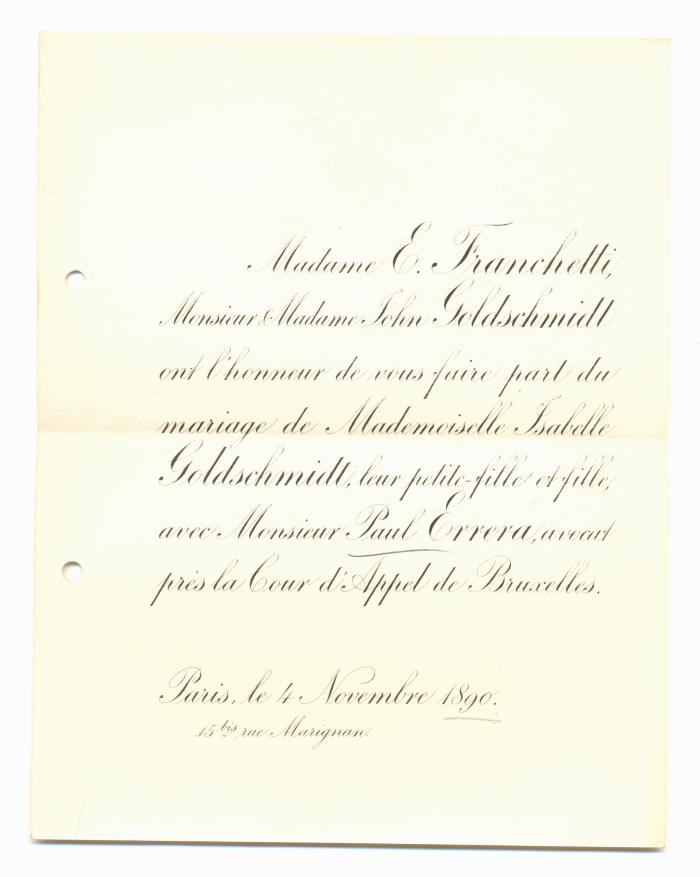 Madame E. Franchetti,
Monsieur & Madame John Goldschmidt
ont l'honneur de vous faire part du
mariage de Mademoiselle Isabelle
Goldschmidt, leur petite-fille et fille,
avec Monsieur Paul Errera, avocat
près la Cour d'Appel de Bruxelles.
Paris, le 4 Novembre 1890.
15 bis rue Marignan.